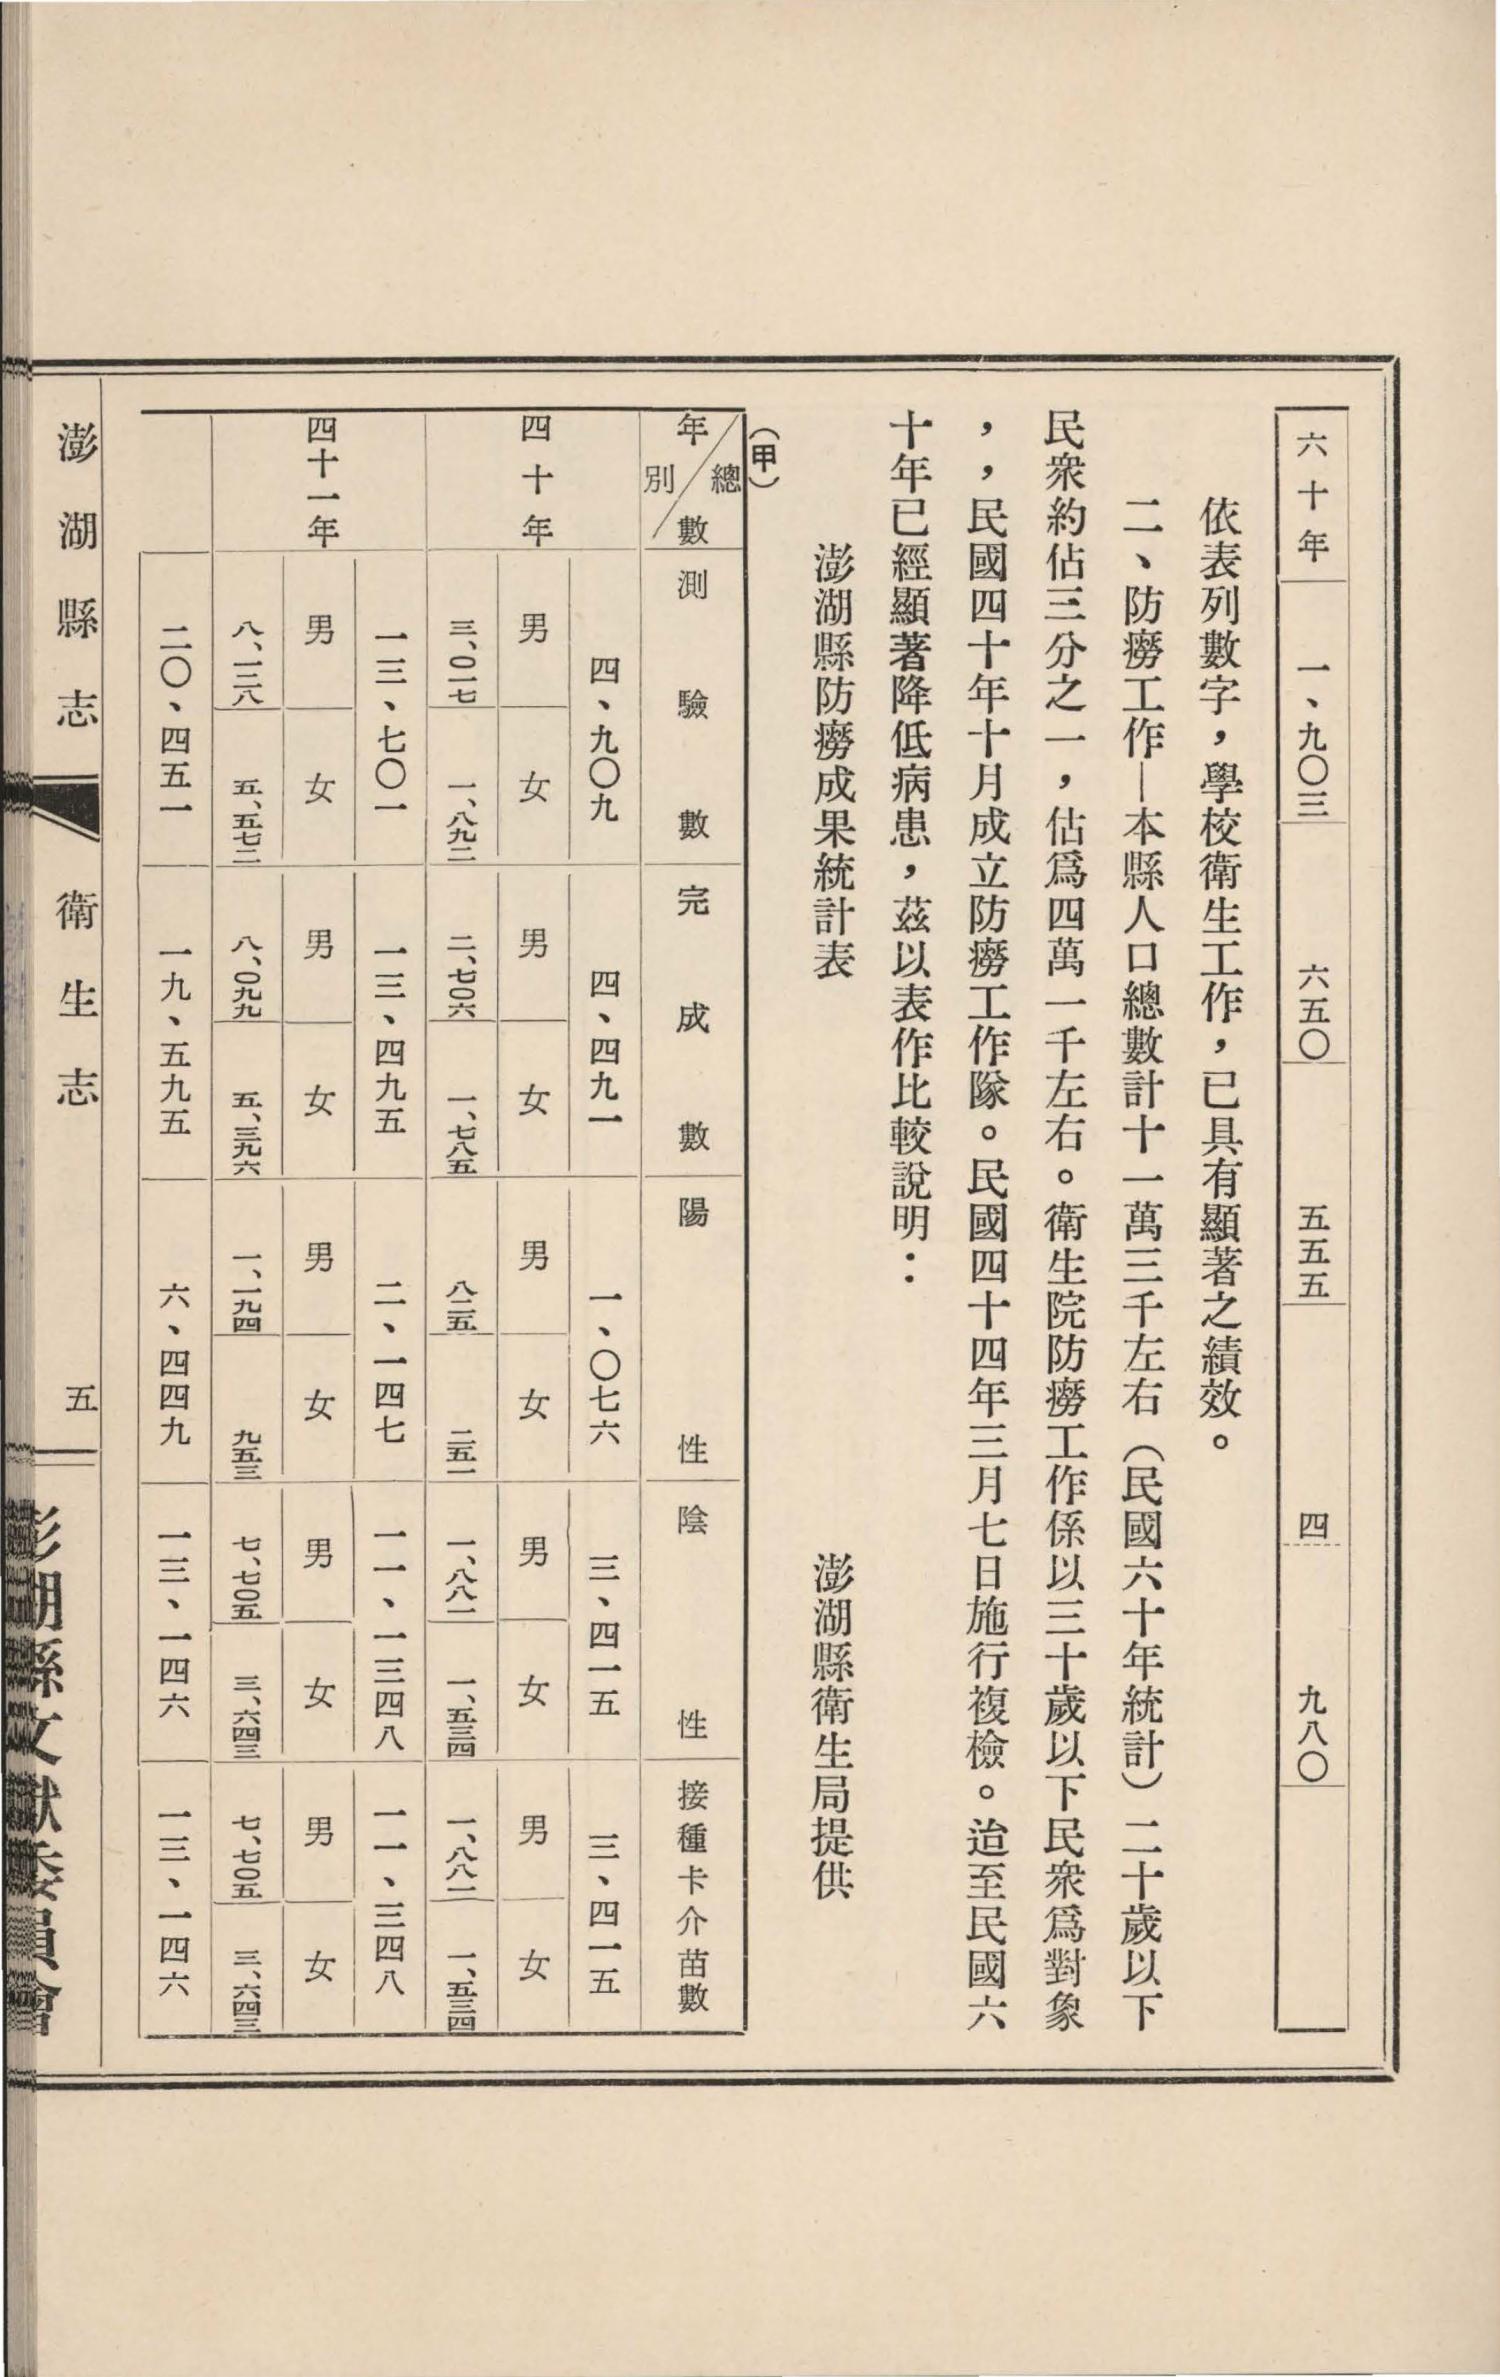 六十年 一、九〇三 六五〇 五五五 四 九八〇
依表列數字，學校衛生工作，已具有顯著之績效。
二、防癆工作—本縣人口總數計十一萬三千左右（民國六十年統計）二十歲以下
民衆約佔三分之一，估爲四萬一千左右。衛生院防癆工作係以三十歲以下民衆爲對象
，，民國四十年十月成立防癆工作隊。民國四十四年三月七日施行複檢。迨至民國六
十年已經顯著降低病患，茲以表作比較說明：
澎湖縣防癆成果統計表 澎湖縣衛生局提供
（甲）
總數 年別 測驗數 完成數 陽性 陰性 接種卡介苗數
四、九〇九 四、四九一 一、〇七六 三、四一五 三、四一五
四十年 男 女 男 女 男 女 男 女 男 女
三、〇一七 一、八九二 二、七〇六 一、七八五 八二五 二五一 一、八八一 一、五三四 一、八八一 一、五三四
一三、七〇一 一三、四九五 二、一四七 一一、一三四八 一一、三四八
四十一年 男 女 男 女 男 女 男 女 男 女
八、一二八 五、五七二 八、〇九九 五、三九六 一、一九四 九五三 七、七〇五 三、六四三 七、七〇五 三、六四三
二〇、四五一 一九、五九五 六、四四九 一三、一四六 一三、一四六
澎湖縣志 衛生志 五 澎湖縣文獻委員會